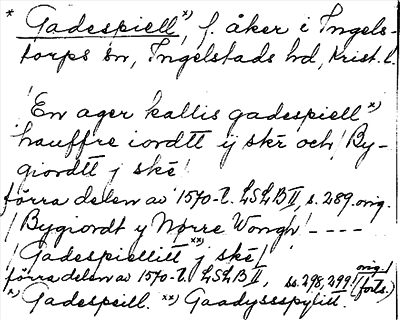 * Gadespiell*), f. åker i Ingels-
torps sn, Ingelstads hd, Krist. l.
'En ager kallis gadespiell*)
hauffre iordtt ij skr och / By-
giordtt j ské'
förra delen av 1570-t. LSLB II, s. 289. orig.
/ Bygiordt y Nørre Wongh / ----
/ Gadespiellitt**) j ské /
förra delen av 1570-t. LSLB II, ss. 298, 299. orig. (forts.)
*) Gadespeill. **) Gaadyssspyliitt.